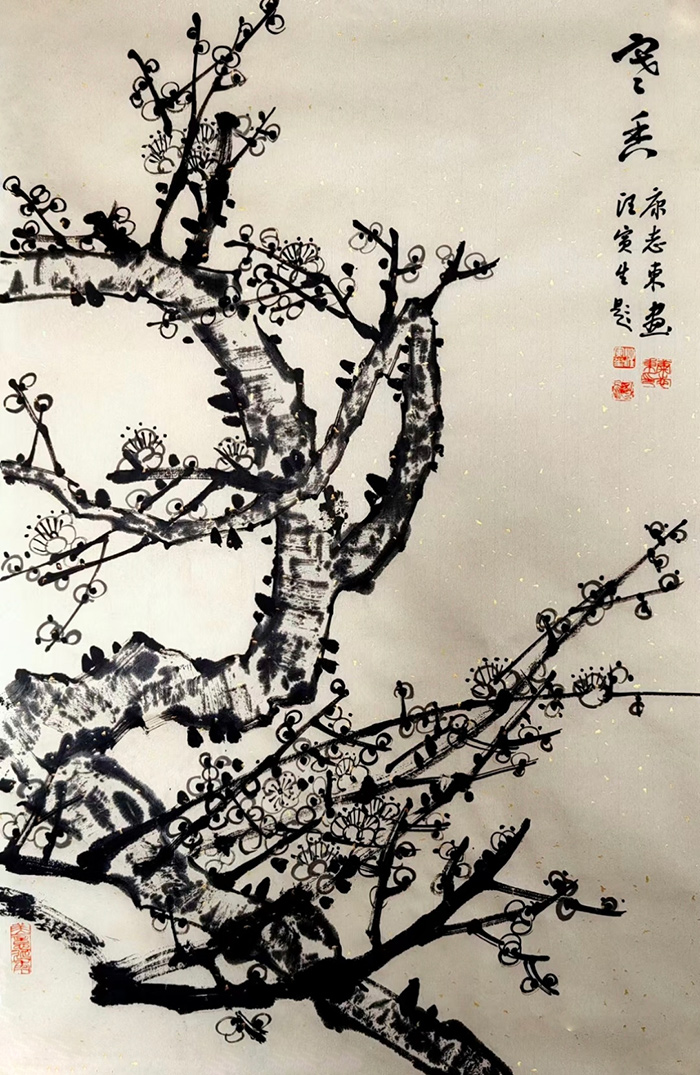 寒香
康志東畫
汪寅生題